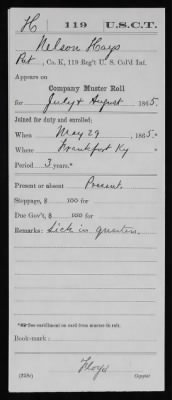 H | 119 | U.S.C.T.
Nelson Hays
Pvt, Co. K, 119 Reg't U. S. Col'd Inf.
Appears on
Company Muster Roll
for July & August, 1865.
Joined for duty and enrolled:
When May 29, 1865.*
Where Frankfort Ky *
Period 3 years.*
Present or absent Present.
Stoppage, $ 100 for
Due Gov't, $ 100 for
Remarks: Sick in quarters.
*See enrollment on card from muster-in roll.
Book-mark:
Floyd
(358c) Copyist.